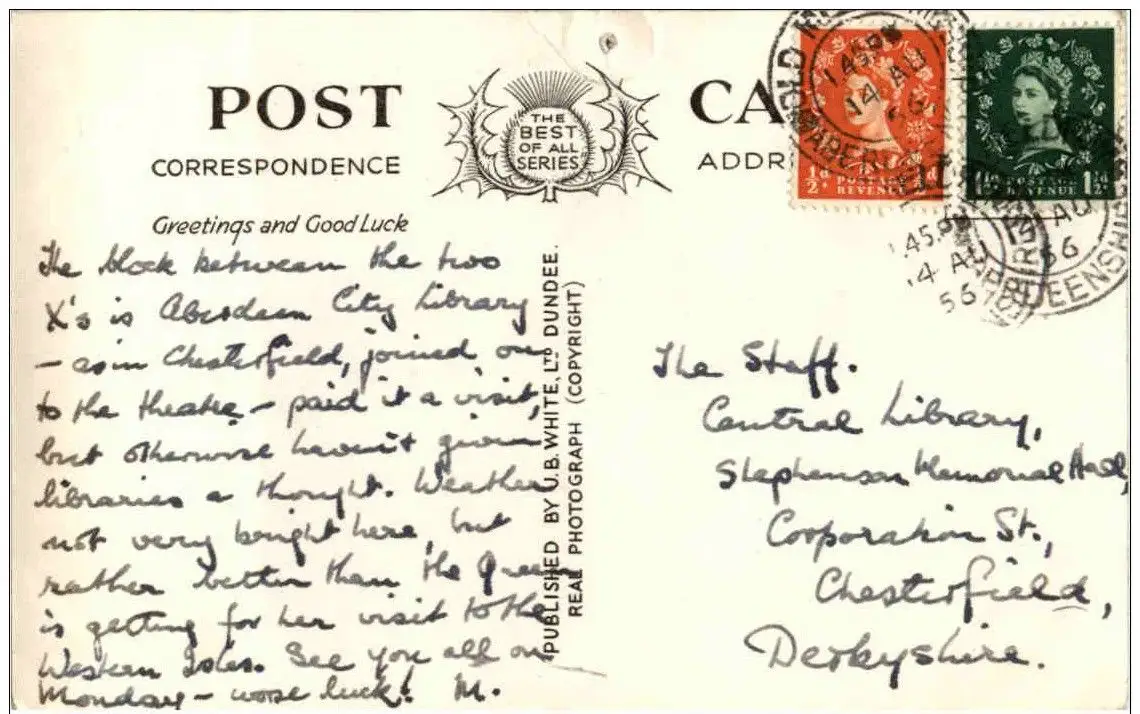 POST CA
CORRESPONDENCE
ADDR
THE
BEST
OF ALL
SERIES
Greetings and Good Luck
The block between the two
X's is Aberdeen City Library
– as in Chesterfield, joined on
to the theatre – paid it a visit,
but otherwise haven't given
libraries a thought. Weather
not very bright here, but
rather better than the Queen
is getting for her visit to the
Western Isles. See you all on
Monday – worse luck! M.
PUBLISHED BY J.B. WHITE, LTD DUNDEE.
REAL PHOTOGRAPH (COPYRIGHT)
½d POSTAGE
REVENUE
1½d
REVENUE 1½d
1.45 PM
14 AU
56
1.45 PM
14 AU
56
14 AU
56
ABERDEENSHIRE
The Staff.
Central Library,
Stephenson Memorial Hall,
Corporation St.,
Chesterfield,
Derbyshire.